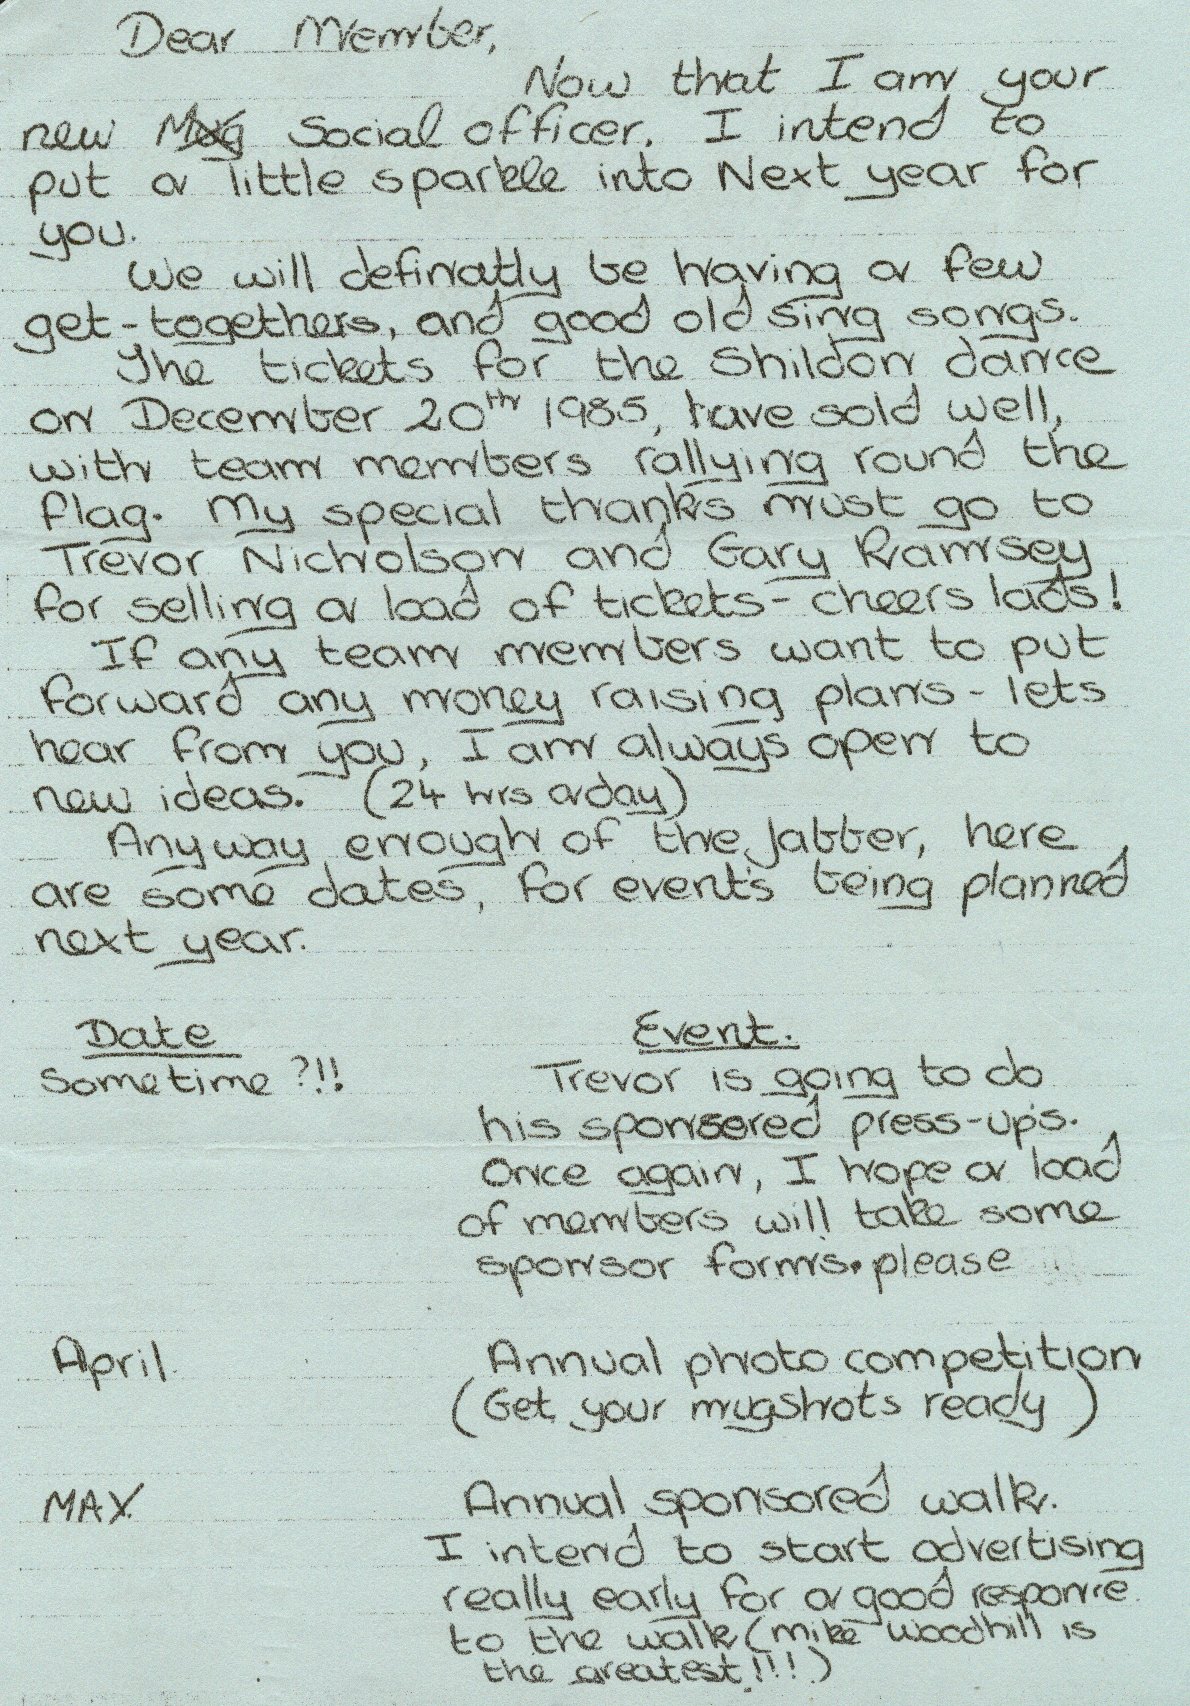 Dear Member,
Now that I am your
new Mug Social officer. I intend to
put a little sparkle into Next year for
you.
We will definatly be having a few
get-togethers, and good old sing songs.
The tickets for the Shildon dance
on December 20th 1985, have sold well,
with team members rallying round the
flag. My special thanks must go to
Trevor Nicholson and Gary Ramsey
for selling a load of tickets - cheers lads!
If any team members want to put
forward any money raising plans - lets
hear from you, I am always open to
new ideas. (24 hrs a day)
Anyway enough of the Jabber, here
are some dates, for events being planned
next year.
Date Event.
Sometime ?!! Trevor is going to do
his sponsered press-ups.
Once again, I hope a load
of members will take some
sponsor forms. please
April. Annual photo competition
(Get your mugshots ready)
MAY. Annual sponsored walk.
I intend to start advertising
really early for a good responce
to the walk (mike woodhill is
the greatest!!!)